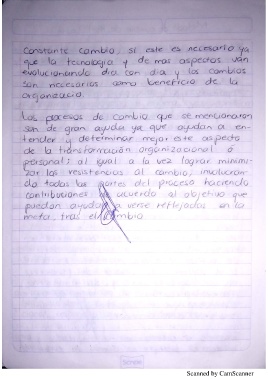 Constante cambio, si este es necesario ya
que la tecnologia y de mas aspectos van
evolucionando dia con dia y los cambios
son necesarios como beneficio de la
organizacio.
Los procesos de cambio que se mencionaron
son de gran ayuda ya que ayudan a en-
tender y determinar mejor este aspecto
de la transformación organizacional ó
personal; al igual a la vez lograr minimi-
zar las resistencias al cambio, involucran-
do todas las partes del proceso haciendo
contribuciones de acuerdo al objetivo que
puedan ayudar a verse reflejadas en la
meta, tras el cambio
Scanned by CamScanner